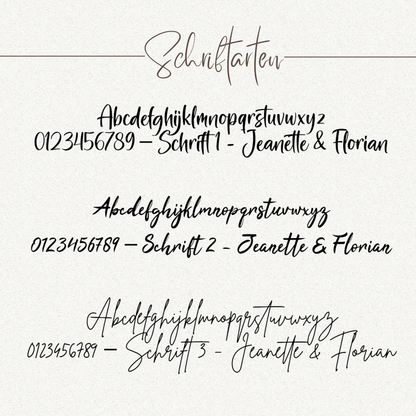 Schriftarten
Abcdefghijklmnopqrstuvwxyz
0123456789 – Schrift 1 - Jeanette & Florian
Abcdefghijklmnopqrstuvwxyz
0123456789 – Schrift 2 - Jeanette & Florian
Abcdefghijklmnopqrstuvwxyz
0123456789 – Schrift 3 - Jeanette & Florian